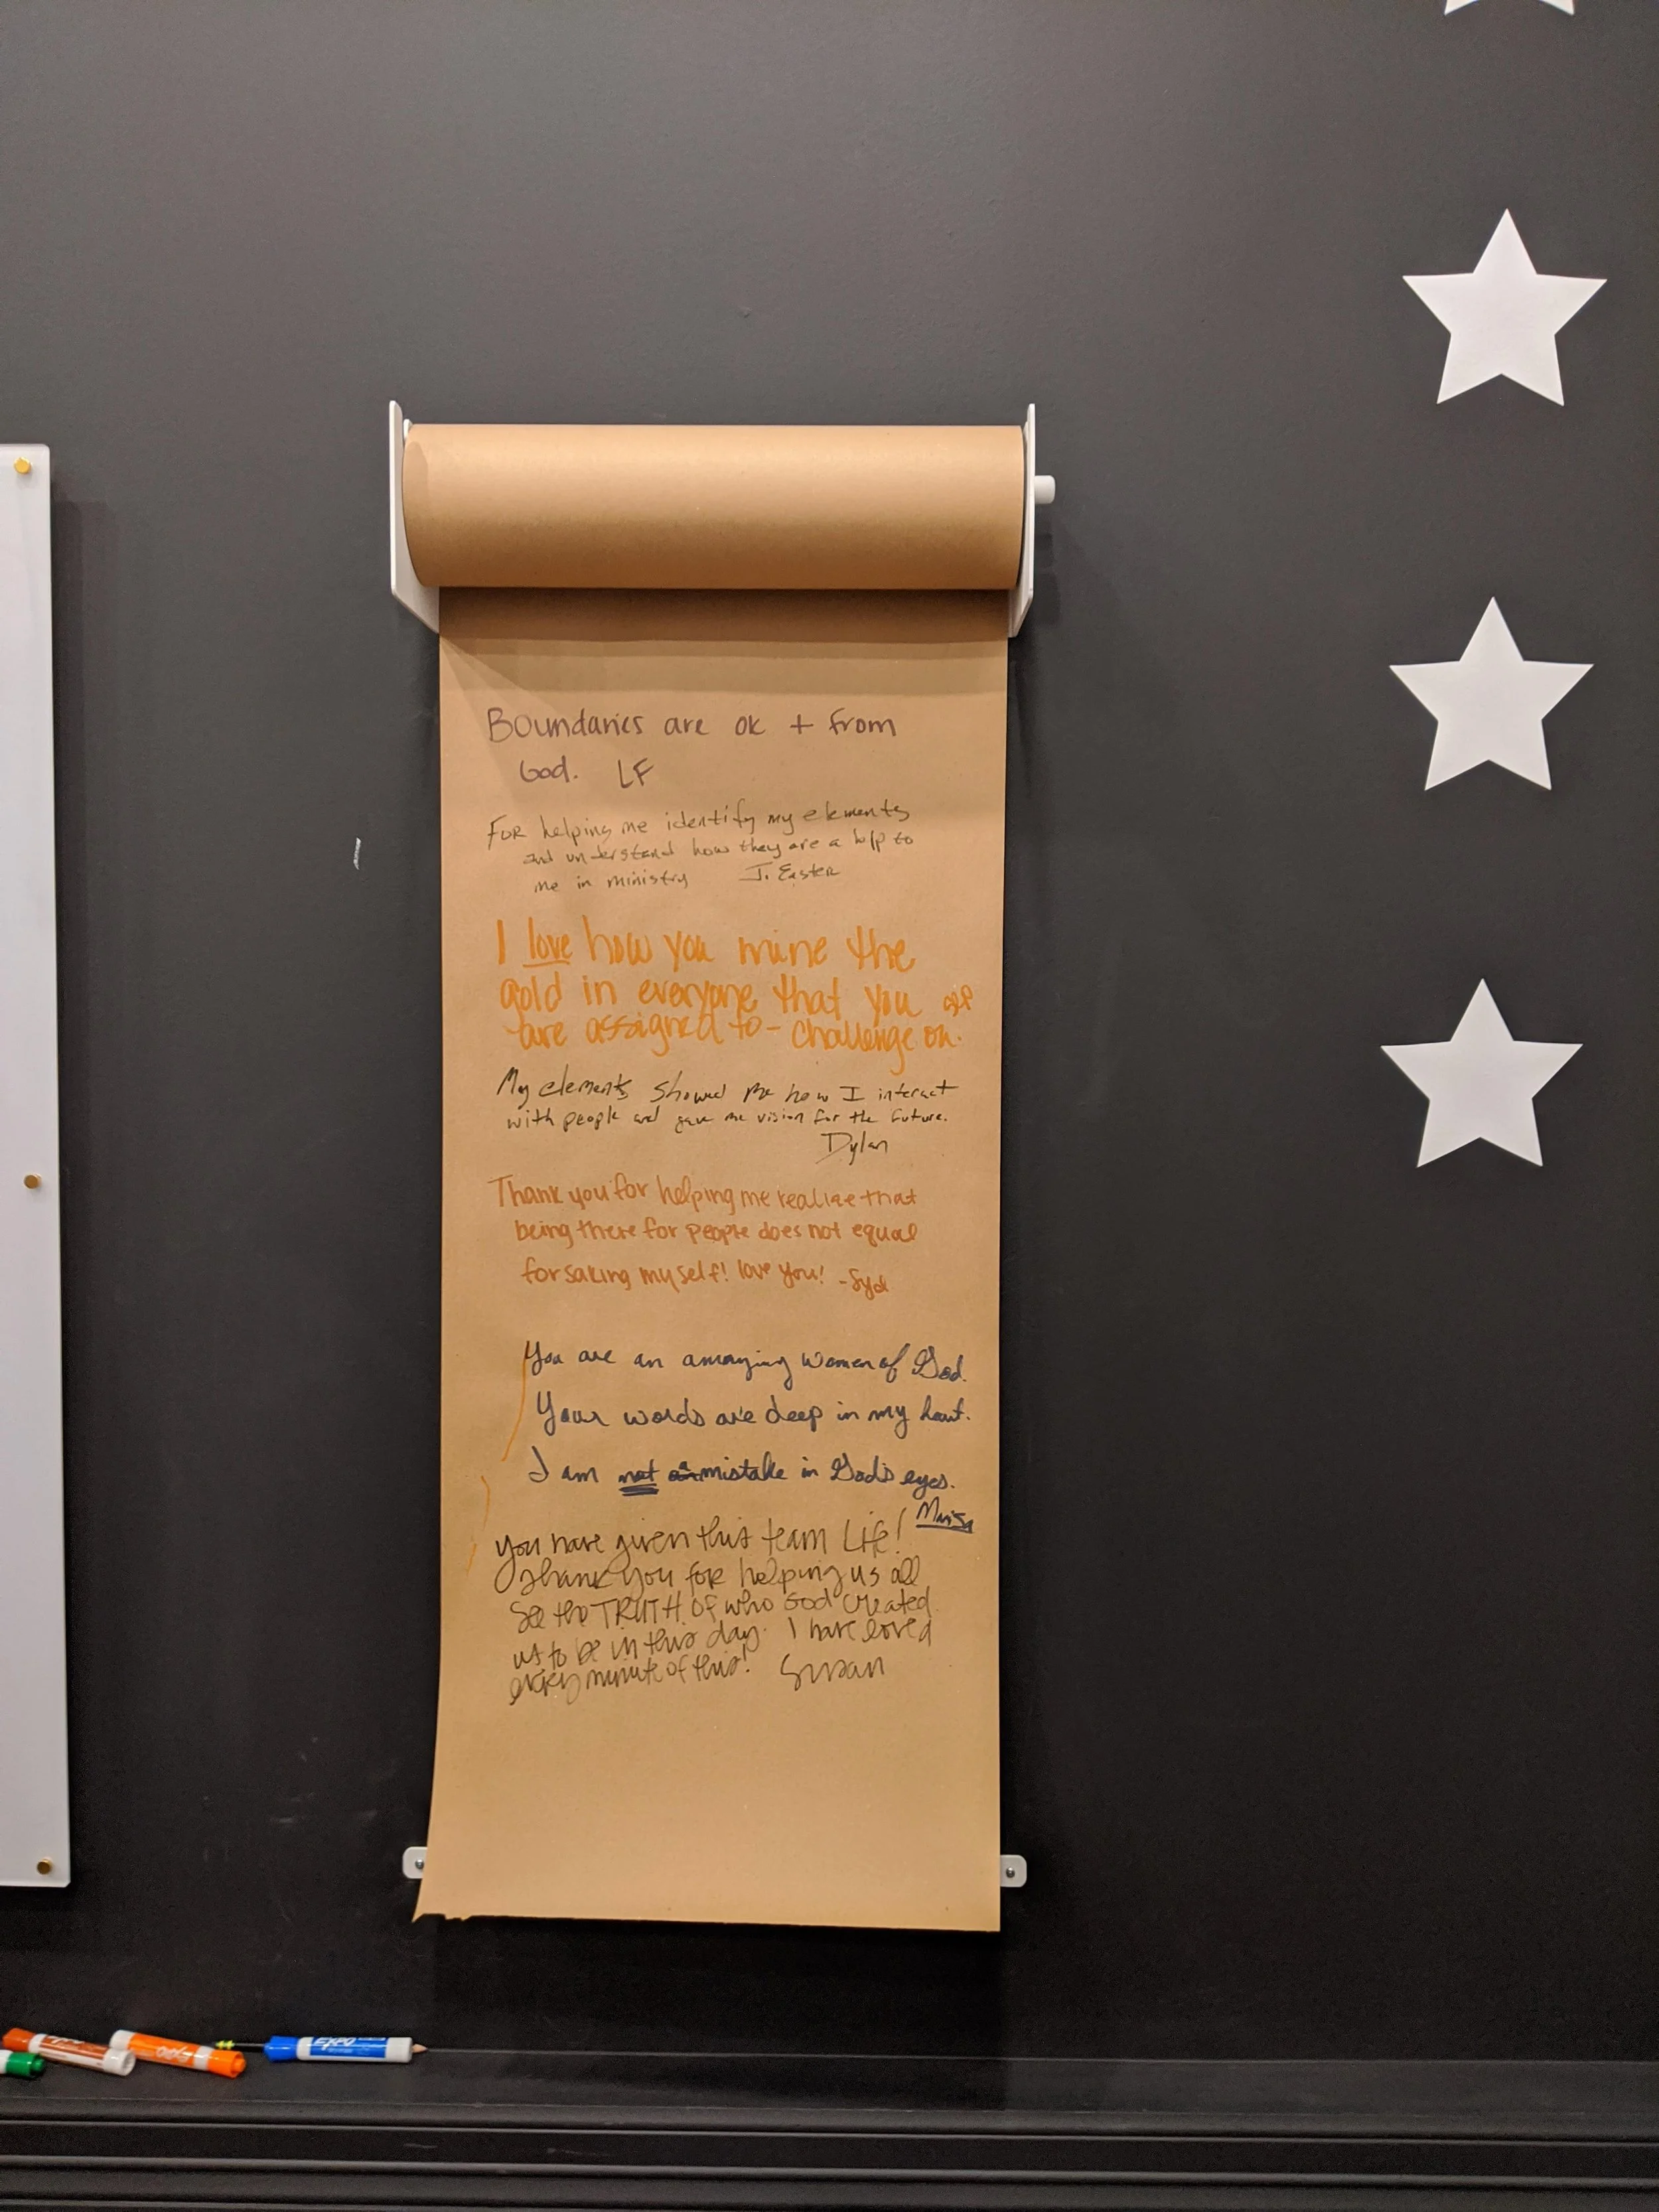 Boundaries are ok + from
God. LF
For helping me identify my elements
and understand how they are a help to
me in ministry J. Easter
I love how you mine the
gold in everyone that you
are assigned to - challenge on.
My elements showed me how I interact
with people and gave me vision for the future.
Dylan
Thank you for helping me realize that
being there for people does not equal
forsaking myself! love you! -Syd
You are an amazing women of God.
Your words are deep in my heart.
I am not a mistake in God's eyes.
Marisa
You have given this team Life!
Thank you for helping us all
See the TRUTH of who God created
us to be in this day. I have loved
every minute of this! Susan
EXPO
EXPO